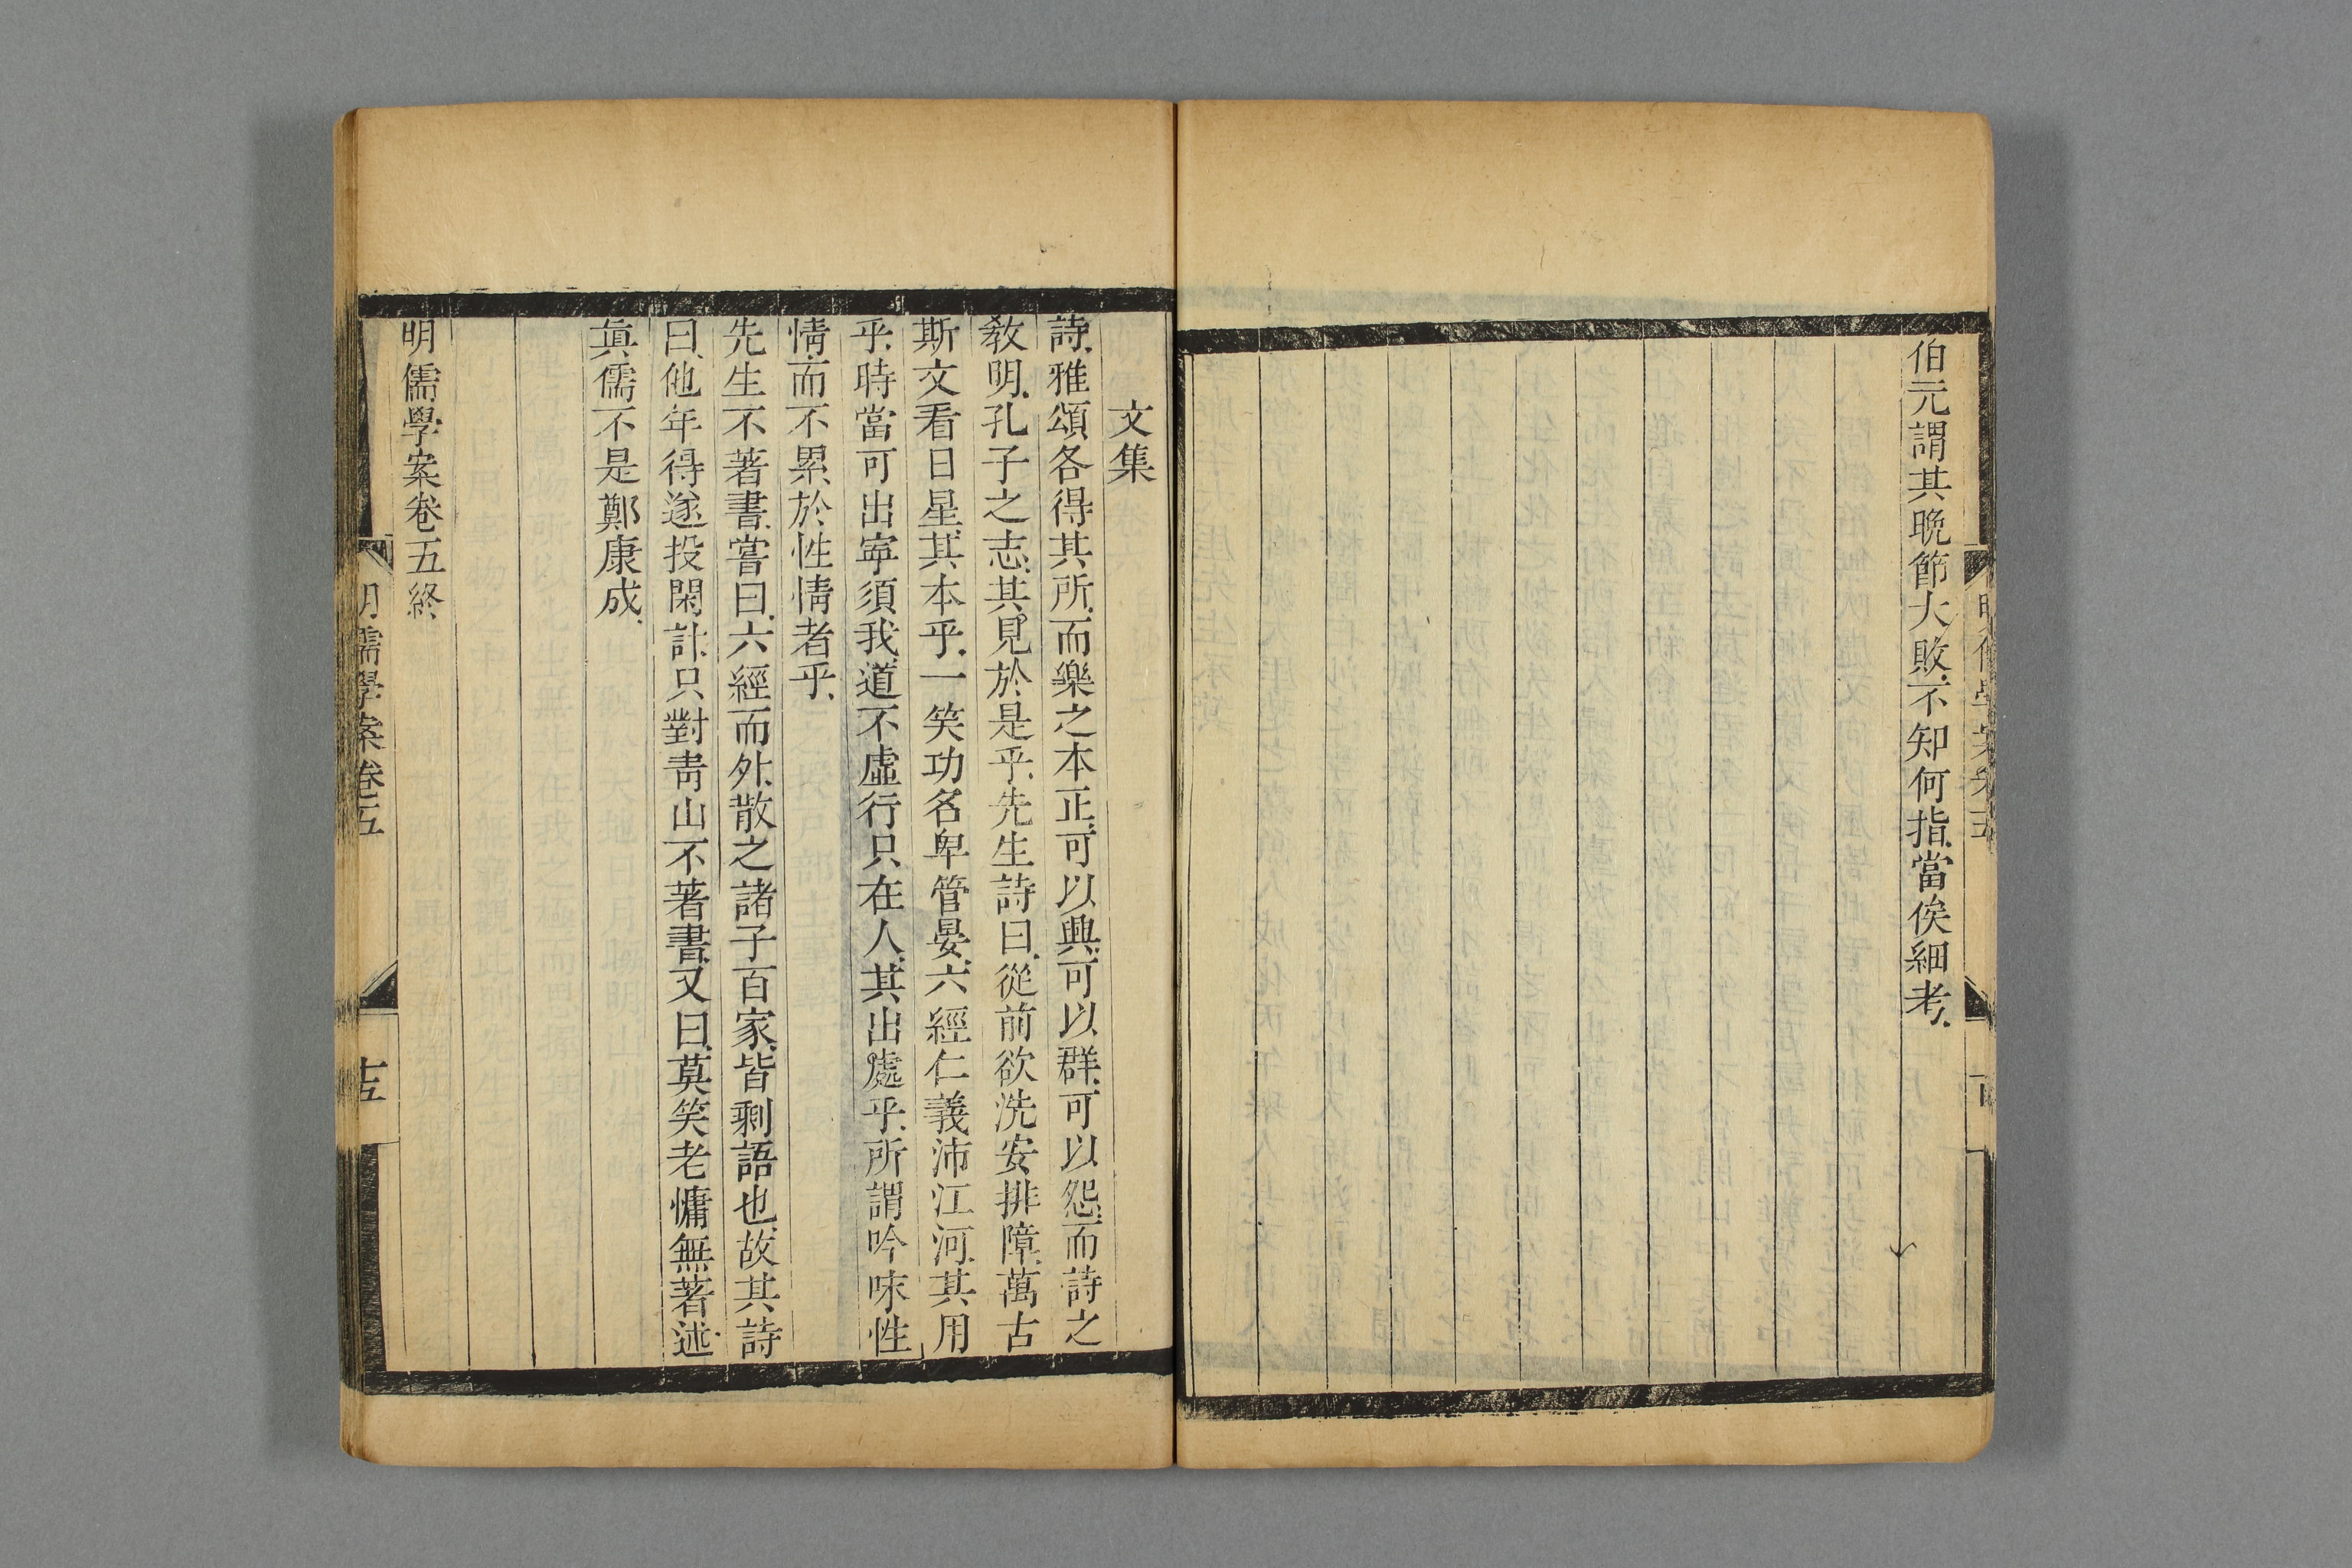 伯元謂其晚節大敗、不知何指、當俟細考、
明儒學案卷五
文集
詩、雅頌各得其所、而樂之本正、可以興、可以群、可以怨、而詩之
教明、孔子之志、其見於是乎、先生詩曰、從前欲洗安排障、萬古
斯文看日星、其本乎、一笑功名卑管晏、六經仁義沛江河、其用
乎、時當可出寧須我、道不虛行只在人、其出處乎、所謂吟咏性
情、而不累於性情者乎、
先生不著書、嘗曰、六經而外、散之諸子百家、皆剩語也、故其詩
曰、他年得遂投閑計、只對青山不著書、又曰、莫笑老慵無著述
眞儒不是鄭康成、
明儒學案卷五終
明儒學案卷五
十五